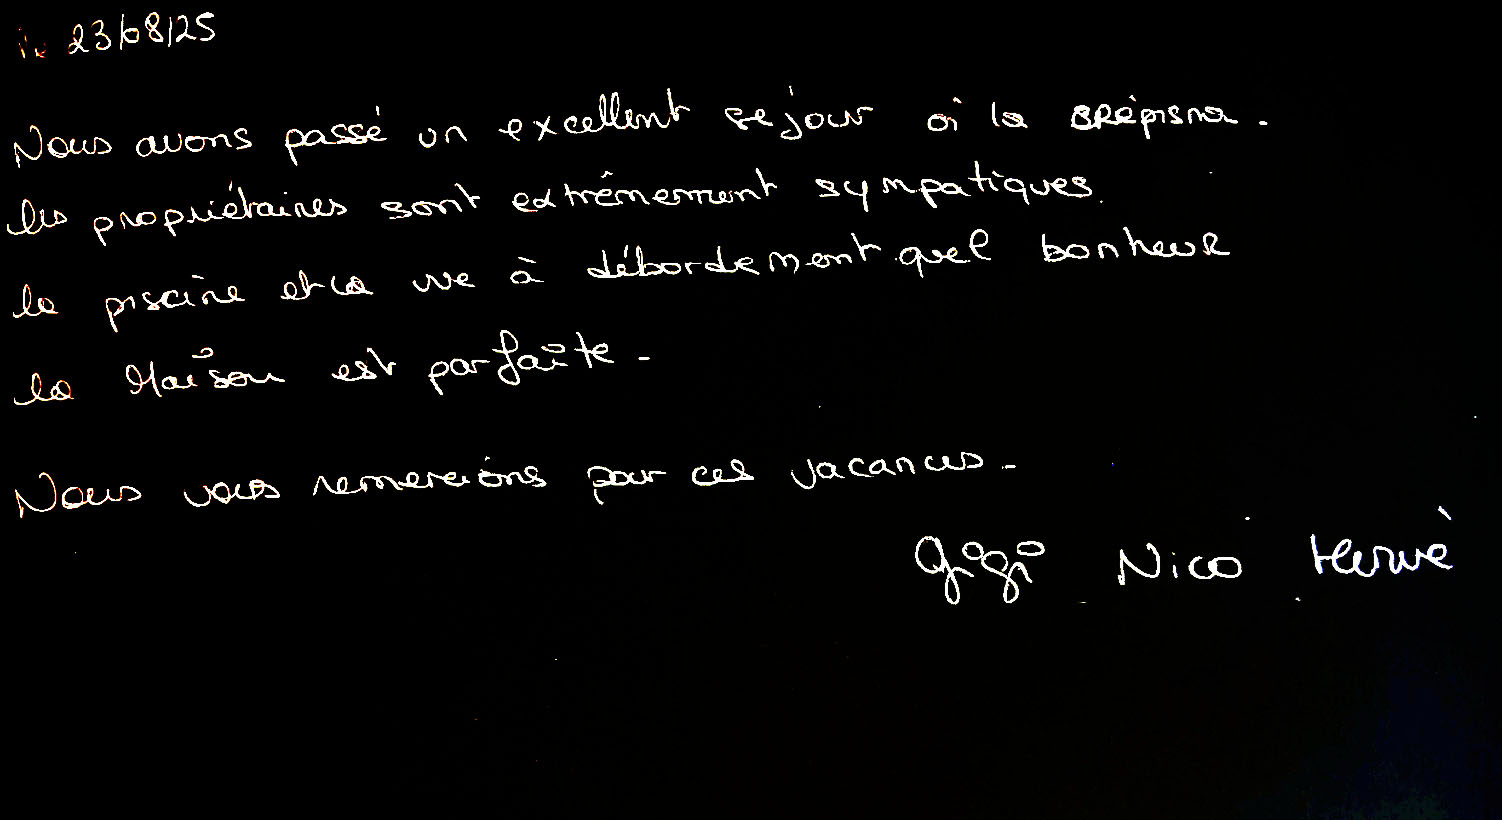 le 23/08/25
Nous avons passé un excellent séjour à la
les propriétaires sont extrêmement sympatiques.
la piscine et la vue à débordement quel bonheur
la Maison est parfaite.
Nous vous remercions pour ces vacances.
Gigi Nico Hervé